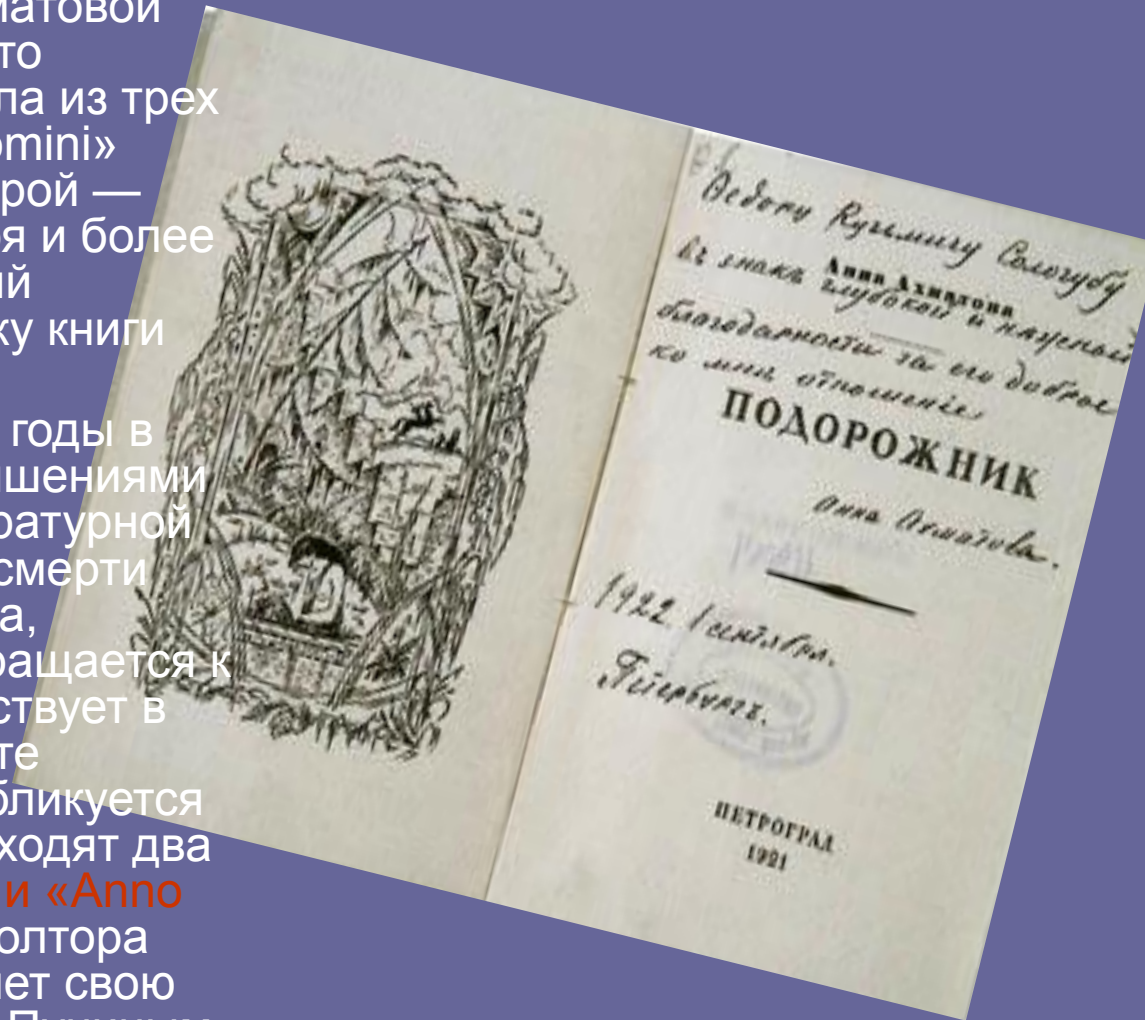 матовой
то
ла из трех
omini»
рой —
я и более
ий
ку книги
годы в
шениями
ратурной
смерти
а,
ращается к
ствует в
те
бликуется
ходят два
и «Anno
олтора
нет свою
Ѳедору Кузьмичу Сологубу
Анна Ахматова
въ знакъ глубокой и
благодарности за его доброе
ко мнѣ отношенiе
ПОДОРОЖНИК
Анна Ахматова.
1922 1 сентября.
Петербургъ.
ПЕТРОГРАД
1921